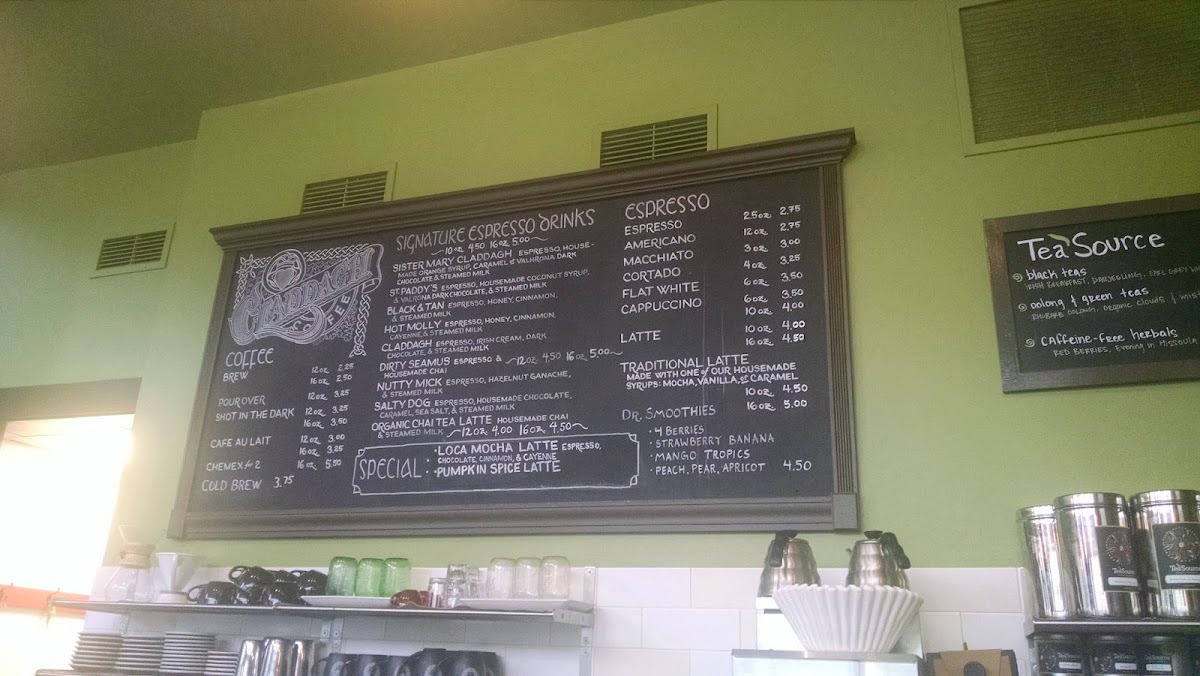 CLADDAGH
COFFEE
COFFEE
BREW 12oz 2.25
16oz 2.50
POUR OVER 12oz 3.25
SHOT IN THE DARK 12oz 3.25
16oz 3.50
CAFE AU LAIT 12oz 3.00
16oz 3.25
CHEMEX for 2 16oz 5.50
COLD BREW 3.75
SIGNATURE ESPRESSO DRINKS
10oz 4.50 16oz 5.00
SISTER MARY CLADDAGH ESPRESSO, HOUSE-
MADE ORANGE SYRUP, CARAMEL & VALHRONA DARK
CHOCOLATE & STEAMED MILK
ST. PADDY'S ESPRESSO, HOUSEMADE COCONUT SYRUP,
& VALRONA DARK CHOCOLATE, & STEAMED MILK
BLACK & TAN ESPRESSO, HONEY, CINNAMON,
& STEAMED MILK
HOT MOLLY ESPRESSO, HONEY, CINNAMON,
CAYENNE & STEAMED MILK
CLADDAGH ESPRESSO, IRISH CREAM, DARK
CHOCOLATE, & STEAMED MILK
DIRTY SEAMUS ESPRESSO & 12oz 4.50 16oz 5.00
HOUSEMADE CHAI
NUTTY MICK ESPRESSO, HAZELNUT GANACHE,
& STEAMED MILK
SALTY DOG ESPRESSO, HOUSEMADE CHOCOLATE,
CARAMEL, SEA SALT, & STEAMED MILK
ORGANIC CHAI TEA LATTE HOUSEMADE CHAI
& STEAMED MILK 12oz 4.00 16oz 4.50
SPECIAL:
· LOCA MOCHA LATTE ESPRESSO,
CHOCOLATE, CINNAMON, & CAYENNE
· PUMPKIN SPICE LATTE
ESPRESSO
ESPRESSO 2.5oz 2.75
AMERICANO 12oz 2.75
MACCHIATO 3oz 3.00
CORTADO 4oz 3.25
FLAT WHITE 6oz 3.50
CAPPUCCINO 6oz 3.50
10oz 4.00
LATTE 10oz 4.00
16oz 4.50
TRADITIONAL LATTE
MADE WITH ONE of OUR HOUSEMADE
SYRUPS: MOCHA, VANILLA, & CARAMEL
10oz 4.50
16oz 5.00
DR. SMOOTHIES
· 4 BERRIES
· STRAWBERRY BANANA
· MANGO TROPICS
· PEACH, PEAR, APRICOT 4.50
TeaSource
black teas
IRISH BREAKFAST, DARJEELING, EARL GREY
oolong & green teas
RHUBARB OOLONG, ORGANIC CLOUDS &
caffeine-free herbals
RED BERRIES, Evening in MISSOULA
TeaSource
TeaSource